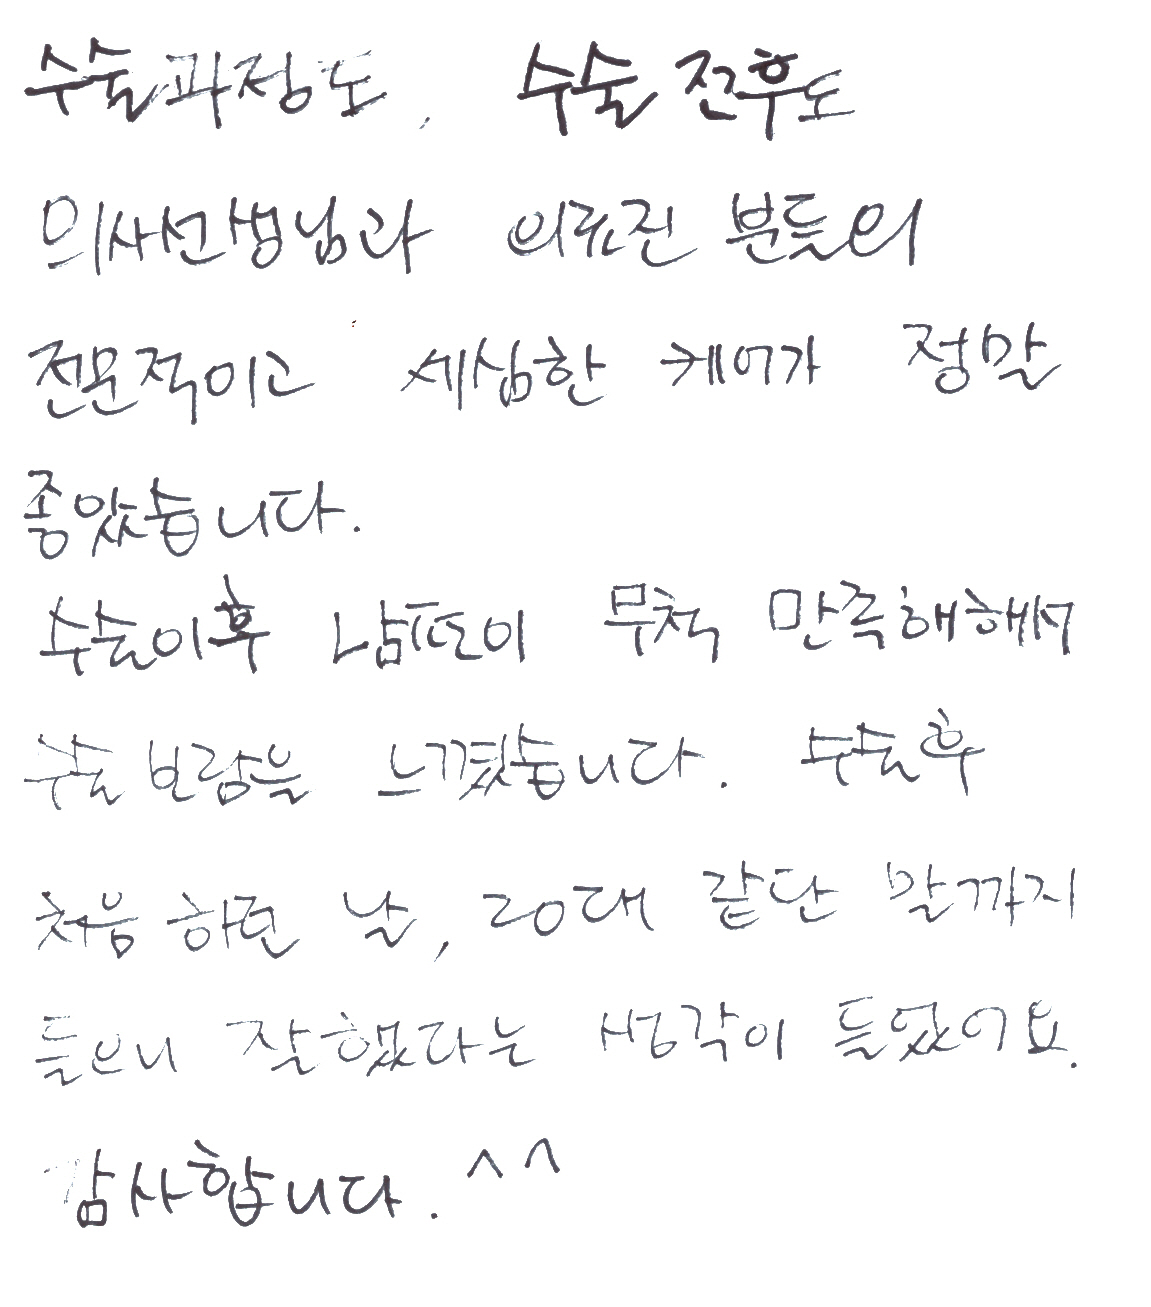 수술과정도, 수술 전후도
의사선생님과 의료진 분들의
전문적이고 세심한 케어가 정말
좋았습니다.
수술이후 남편이 무척 만족해해서
수술 보람을 느꼈습니다. 수술후
처음 하던 날, 20대 같단 말까지
들으니 잘했다는 생각이 들었어요.
감사합니다. ^^